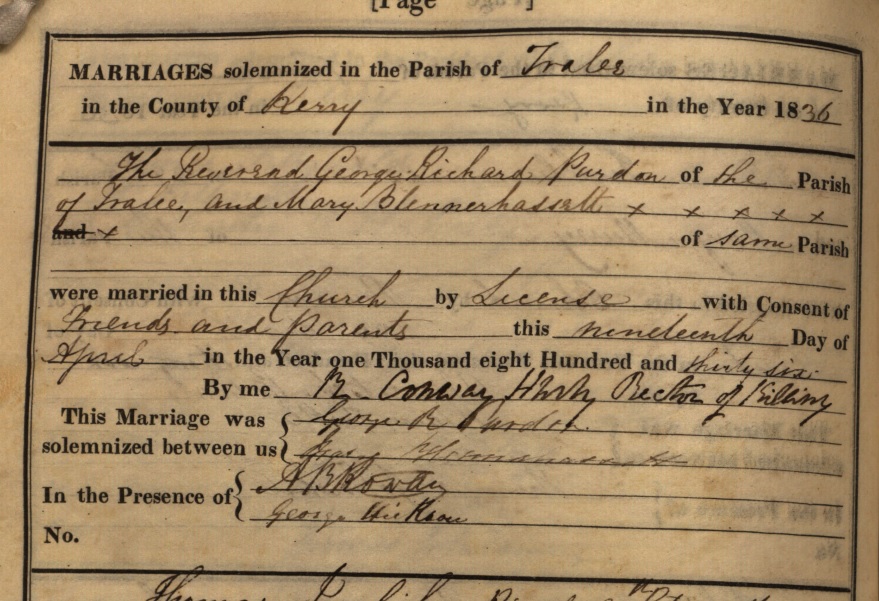 [Page ]
MARRIAGES solemnized in the Parish of Tralee
in the County of Kerry in the Year 1836
The Reverend George Richard Purdon of the Parish
of Tralee, and Mary Blennerhassett x x x x x
and x of same Parish
were married in this Church by License with Consent of
Friends and Parents this nineteenth Day of
April in the Year one Thousand eight Hundred and thirty six.
By me R Conway Rector of
This Marriage was
solemnized between us { George R Purdon.
Mary Blennerhassett
In the Presence of { A B Rowan
George Hickson
No.
Thomas